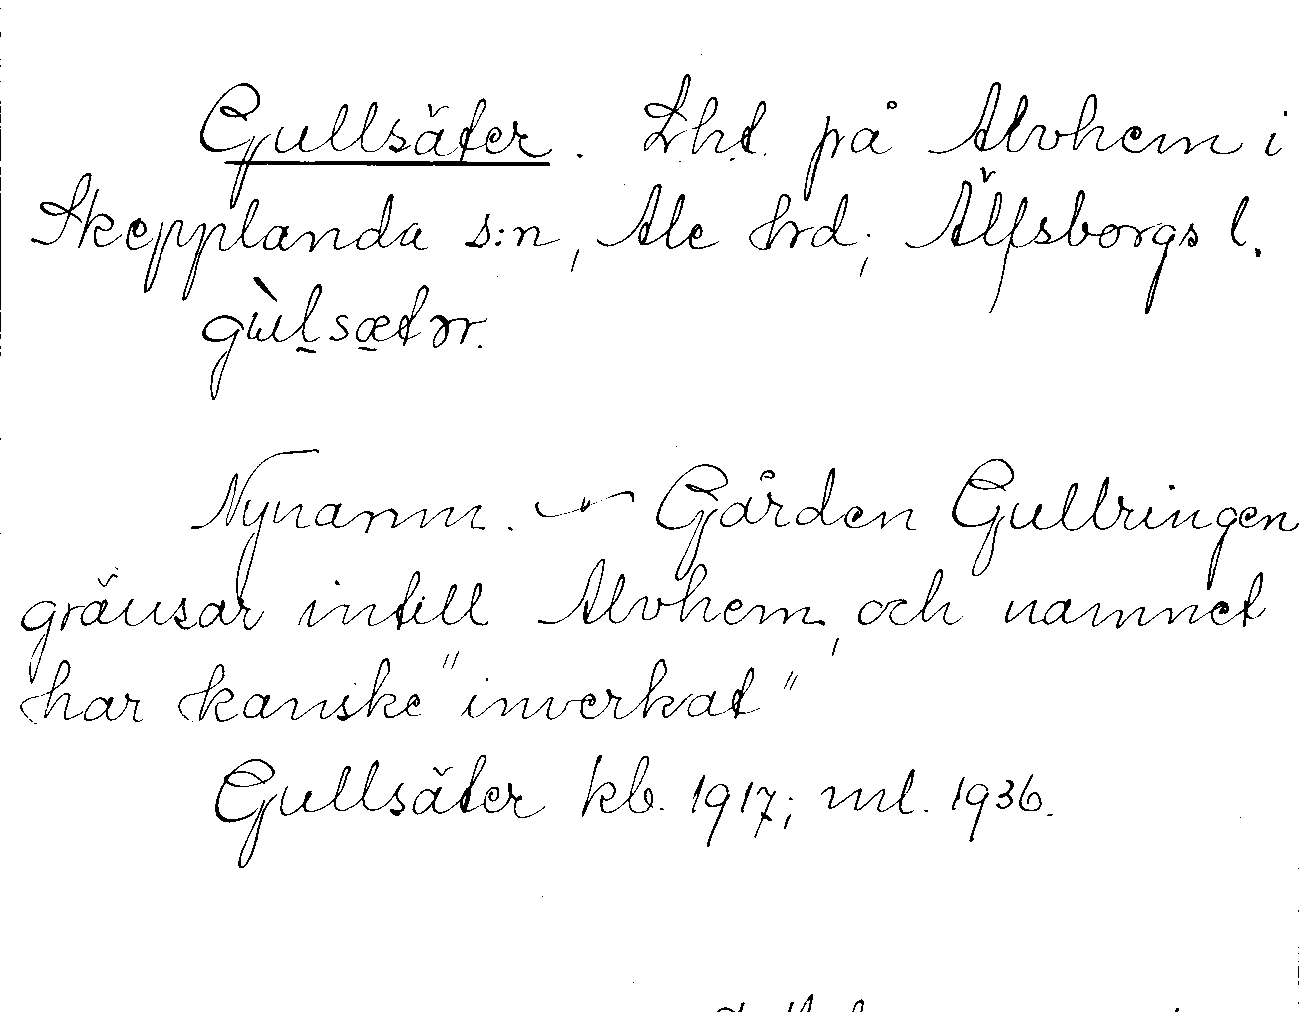 Gullsäter. Lht. på Alvhem i
Skepplanda s:n, Ale hrd; Älfsborgs l.
gu̇̀lsætər.
Nynamn. – Gården Gullringen
gränsar intill Alvhem, och namnet
har kanske "inverkat"
Gullsäter kb. 1917; ml. 1936.